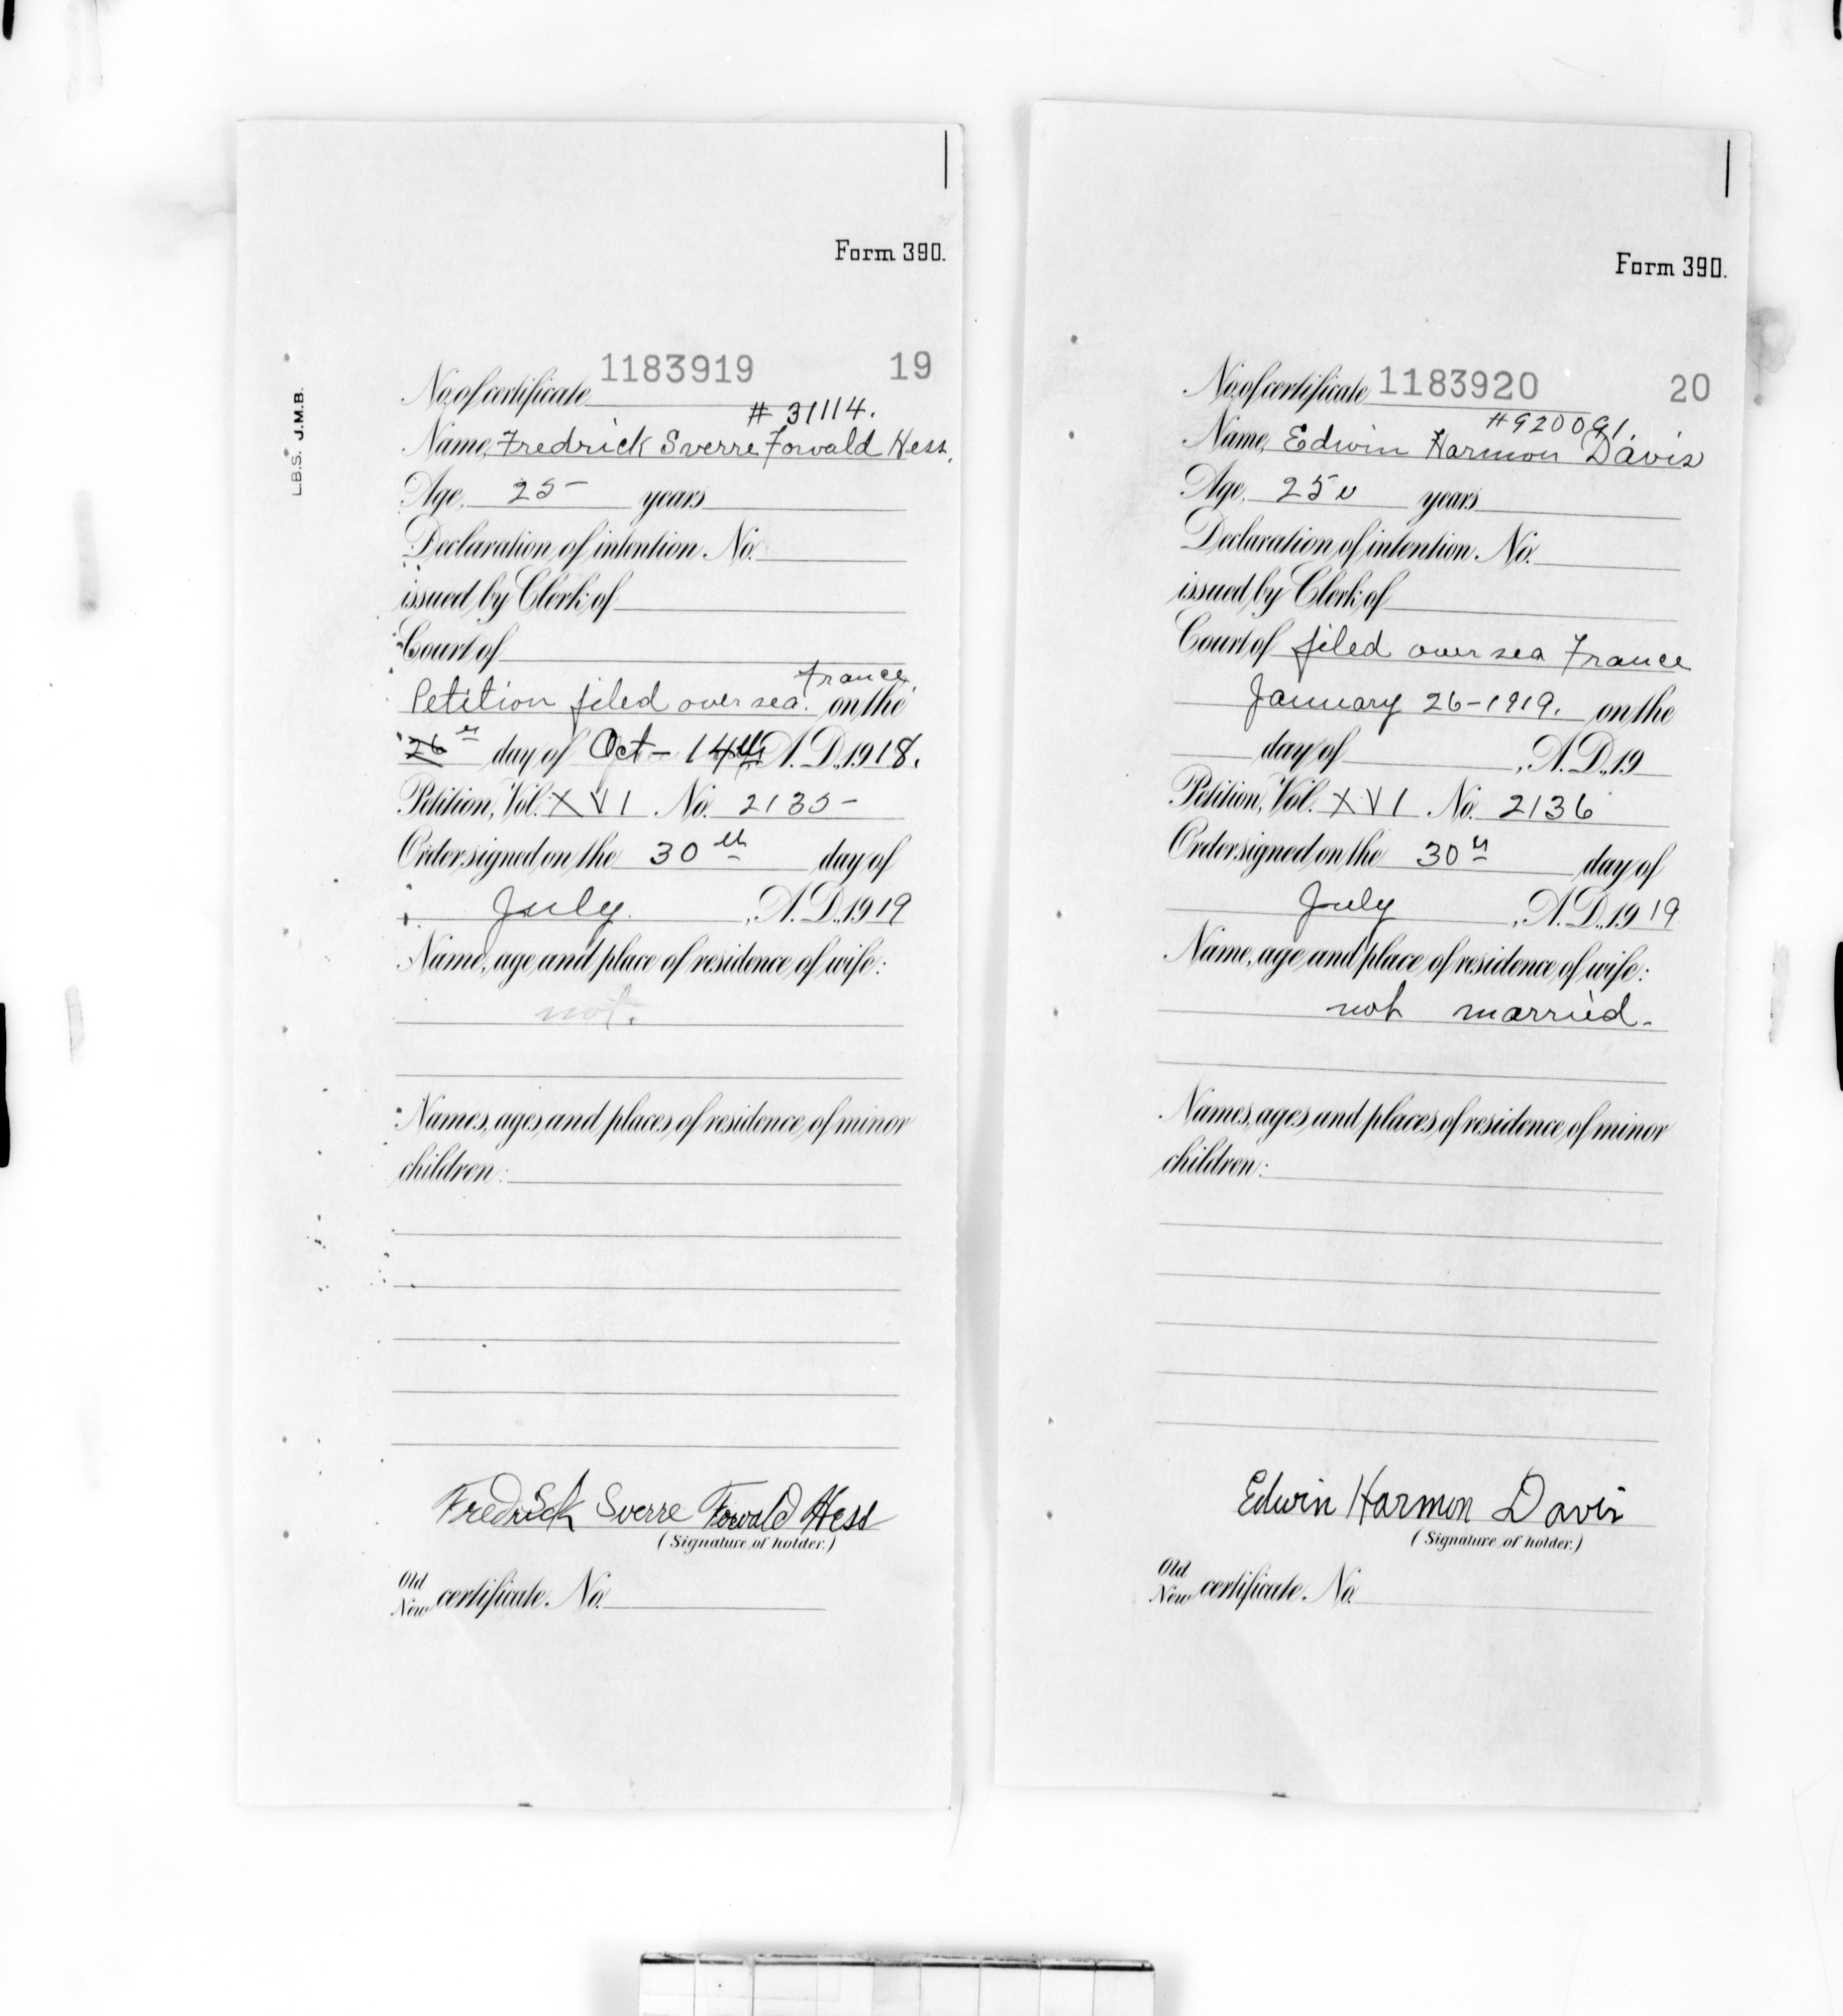 Form 390.
L.B.S. J.M.B.
No. of certificate 1183919 19
# 31114.
Name, Fredrick Sverre Forvald Hess.
Age, 25 years
Declaration of intention No.
issued by Clerk of
Court of
France
Petition filed over sea. on the
26th day of Oct - 14th A. D., 1918.
Petition, Vol. XVI No. 2135
Order signed on the 30th day of
July, A. D., 1919
Name, age and place of residence of wife:
not.
Names, ages and places of residence of minor
children:
Fredrick Sverre Forvald Hess
(Signature of holder.)
Old
New certificate. No.
Form 390.
No. of certificate 1183920 20
# 920091.
Name, Edwin Harmon Davis
Age, 25 years
Declaration of intention No.
issued by Clerk of
Court of filed over sea France
January 26-1919. on the
day of , A. D., 19
Petition, Vol. XVI No. 2136
Order signed on the 30th day of
July , A. D., 1919
Name, age and place of residence of wife:
not married.
Names, ages and places of residence of minor
children:
Edwin Harmon Davis
(Signature of holder.)
Old
New certificate. No.